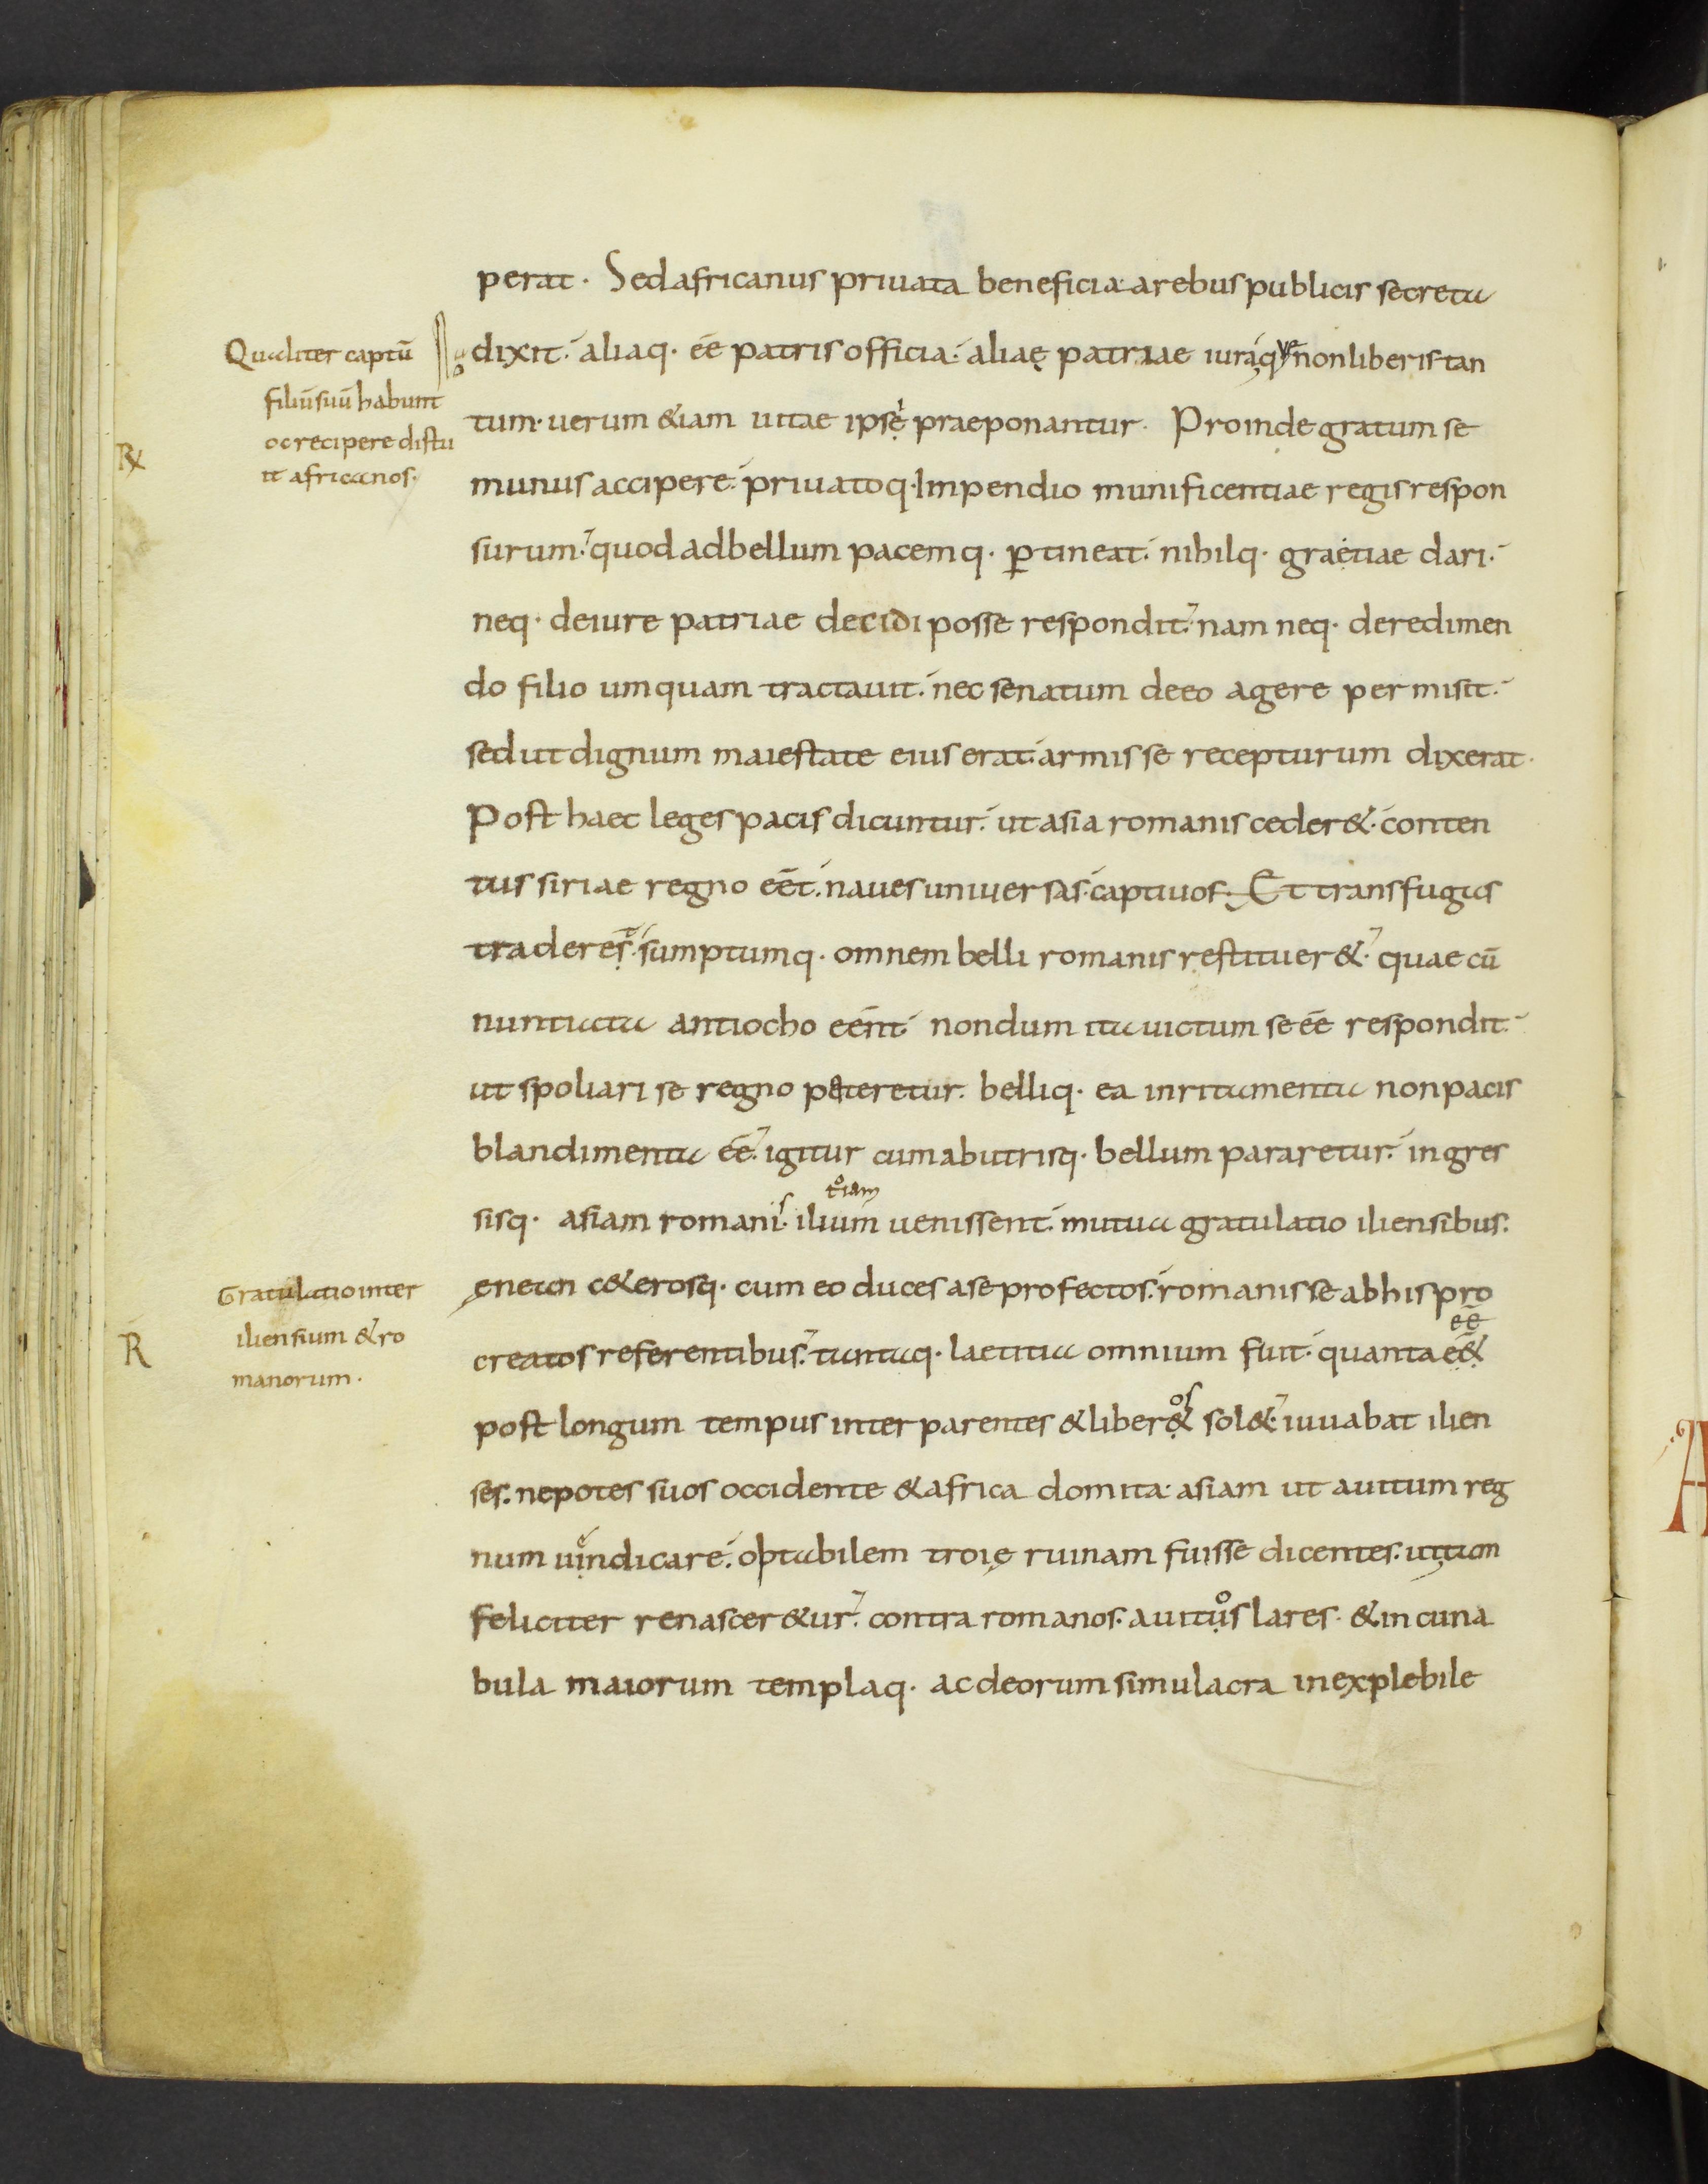 perat. Sed africanus priuata beneficia a rebus publicis secreta
dixit. aliaq. eē patris officia. aliaę patriae iuraq ve non liberis tan
tum. uerum &iam uitae ipsę praeponantur. Proinde gratum se
munus accipere. priuatoq. Impendio munificentiae regis respon
surum. quod ad bellum pacemq. ꝑtineat. nihilq. graetiae dari.
neq. de iure patriae decidi posse respondit. nam neq. de redimen
do filio umquam tractauit. nec senatum de eo agere permisit.
sed ut dignum maiestate eius erat. armis se recepturum dixerat.
Post haec leges pacis dicuntur. ut asia romanis ceder&. conten
tus siriae regno eēt. naues uniuersas. captiuos. Et transfugas
traderes. sumptumq. omnem belli romanis restituer&. quae cū
nuntiata antiocho eēnt. nondum ita uictum se eē respondit.
ut spoliari se regno pateretur. belliq. ea inritamenta non pacis
blandimenta eē. igitur cum ab utrisq. bellum pararetur. ingres
toiam
sisq. asiam romanis. ilium uenissent. mutua gratulatio iliensibus.
enean c&erosq. cum eo duces a se profectos. romanis se ab his pro
eē
creatos referentibus. tantaq. laetitia omnium fuit. quanta e&
os
post longum tempus inter parentes & liber& sol&. iuuabat ilien
ses. nepotes suos occidente & africa domita. asiam ut auitum reg
num uindicare. optabilem troię ruinam fuisse dicentes. ut tam
feliciter renascer&ur. contra romanos. auitus lares. & incuna
bula maiorum templaq. ac deorum simulacra inexplebile
Qualiter captū
filiū suū habunt
oc recipere distu
it africanos.
R
Gratulatio inter
iliensium & ro
manorum.
R
A